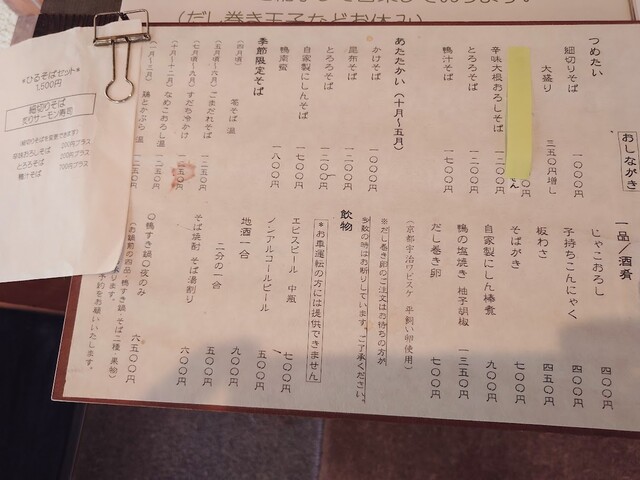 (だし巻き玉子などお休み)
*ひるそばセット*
1,500円
細切りそば
炙りサーモン寿司
とろろそば 200円プラス
鴨汁そば 700円プラス
おしながき
つめたい
細切りそば 一〇〇〇円
大盛り 三五〇円増し
辛味大根おろしそば 一二〇〇円
とろろそば 一二〇〇円
鴨汁そば 一七〇〇円
あたたかい(十月〜五月)
かけそば 一〇〇〇円
昆布そば 一二〇〇円
とろろそば 一二〇〇円
自家製にしんそば 一六〇〇円
鴨南蛮 一八〇〇円
季節限定そば
(四月頃) 筍そば 温
(五月頃〜六月) ごまだれそば 一二五〇円
(七月頃〜九月) すだち冷かけ 一一五〇円
(十月〜十二月) なめこおろし 温 一二五〇円
(一月〜三月) 鶏とかぶら 温 一二五〇円
一品/酒肴
じゃこおろし 四〇〇円
子持ちこんにゃく 四〇〇円
板わさ 四五〇円
そばがき 七〇〇円
自家製にしん棒煮 九〇〇円
鴨の塩焼き 柚子胡椒 一三五〇円
だし巻き卵 七〇〇円
(京都宇治ワビスケ 平飼い卵使用)
※だし巻き卵のご注文はお待ちの方が
多数の時はお断りしています。ご了承ください。
飲物
*お車運転の方には提供できません
ヱビスビール 中瓶 七〇〇円
ノンアルコールビール 五〇〇円
地酒一合 九〇〇円
二分の一合 五〇〇円
そば焼酎 そば湯割り 六〇〇円
〇鴨すき鍋〇夜のみ 六五〇〇円
(お鍋前の四品 鴨すき鍋 そば二種 果物)
予約をお願いいたします。